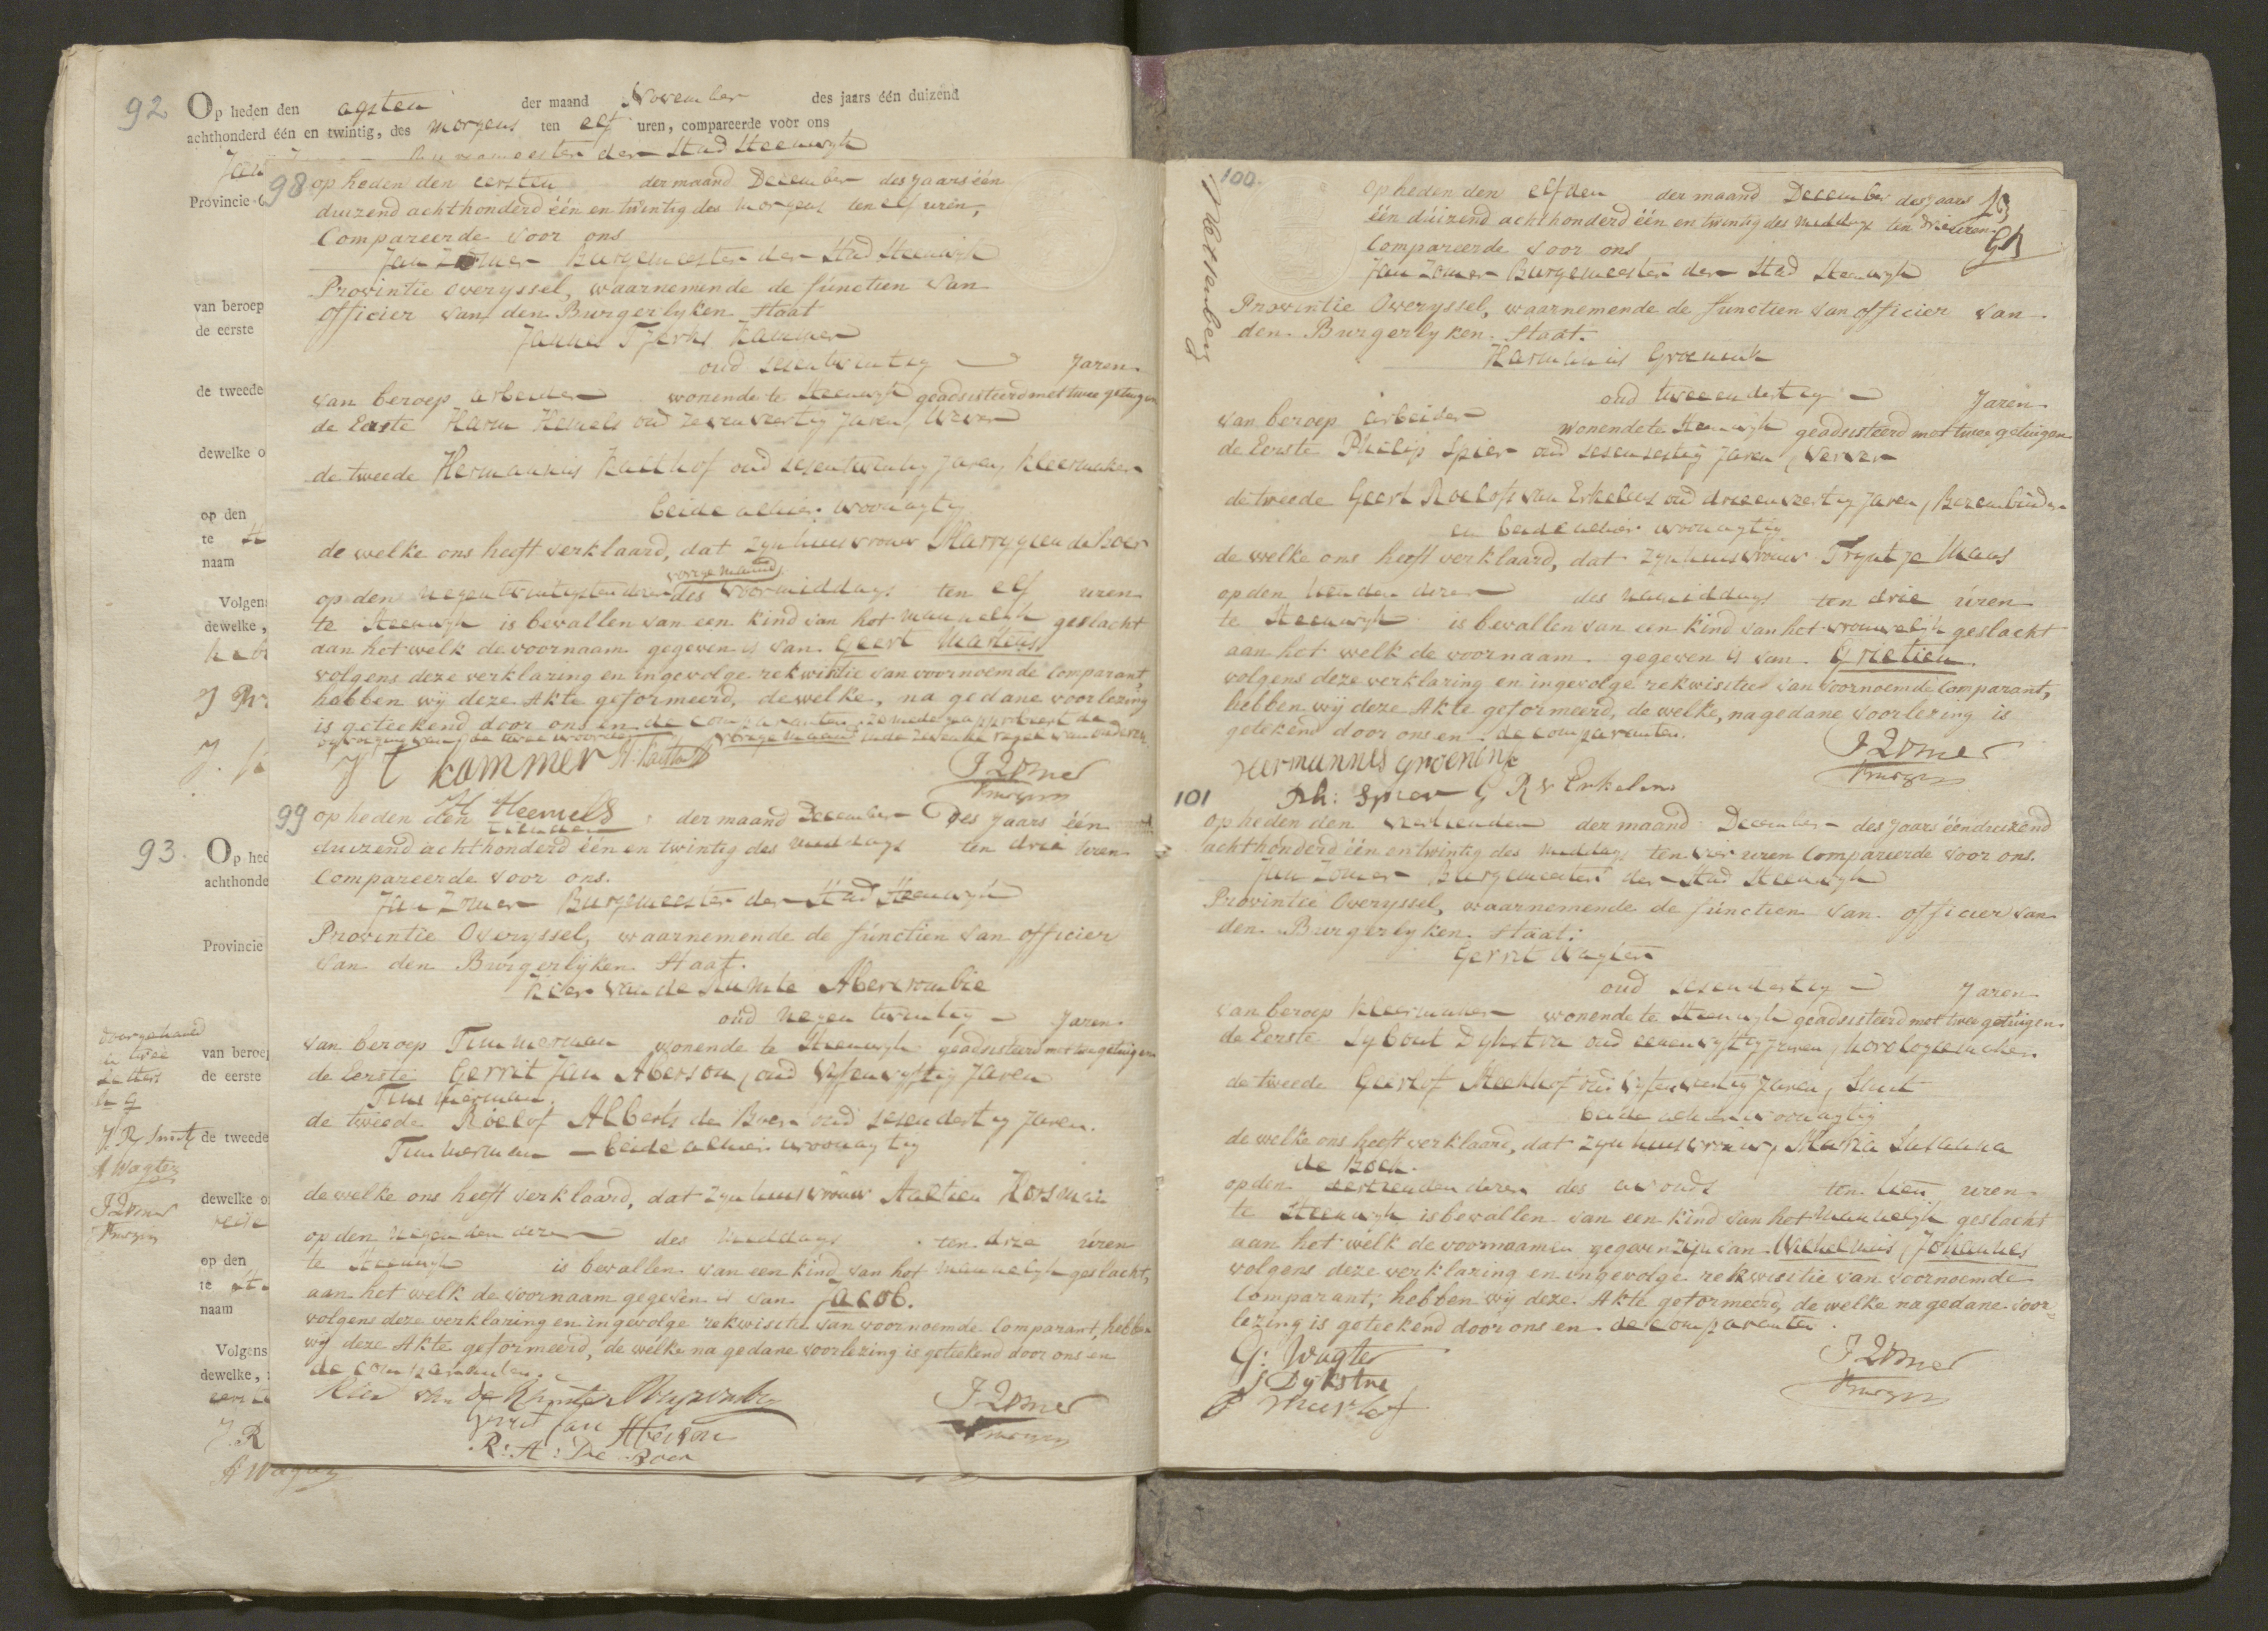 92 Op heden den agsten der maand November des jaars één duizend
achthonderd één en twintig, des morgens ten elf uren, compareerde voor ons
Burgemeester der Stad Steenwyk
Provincie
van beroep
de eerste
de tweede
dewelke
op den
te
naam
Volgens
dewelke,
93. Op
achthonde
Provincie
doorgehaald
van beroep
de eerste
J. R. Smit
de tweede
H Wagter
J Zomer
Burgem
dewelke
op den
te
naam
Volgens
dewelke,
J. R
H Wagter
98 op heden den eersten der maand December des jaars één
duizend achthonderd één en twintig des morgens ten elf uren,
Compareerde voor ons
Jan Zomer Burgemeester der Stad Steenwijk
Provintie Overyssel, waarnemende de functien van
officier van den Burgerlyken Staat
Jannes Tjerks Kammer
oud sesentwintig Jaren
van beroep arbeider wonende te Steenwyk geadsisteerd met twee getuigen
de Eerste Harm Hemels oud zevenveertig Jaren, Wever
de tweede Hermannus Kalthof oud sesentwintig Jaren, kleermaker
beide alhier woonagtig
de welke ons heeft verklaard, dat zyn huisvrouw Marrygien de Boer
vorige maand
op den negentwintigsten dezer des voormiddags ten elf uren
te Steenwyk is bevallen van een kind van het mannelyk geslacht
aan het welk de voornaam gegeven is van Geert Martens
volgens deze verklaring en ingevolge rekwisitie van voornoemde Comparant,
hebben wij deze Akte geformeerd, dewelke, na gedane voorlezing
is geteekend door ons en de comparanten
J T kammer H. Kalthof J Zomer
Burgem
H Heemels
99 op heden den tienden der maand December des jaars één
duizend achthonderd één en twintig des middags ten drie uren
Compareerde voor ons.
Jan Zomer Burgemeester der Stad Steenwyk
Provintie Overyssel, waarnemende de functien van officier
van den Burgerlijken Staat.
van de Abercrombie
oud negentwintig Jaren
van beroep Timmerman wonende te Steenwyk geadsisteerd met twee getuigen
de Eerste Gerrit Jan Aberson, oud vyfenvyftig Jaren
Timmerman.
de tweede Roelof Alberts de Boer oud sesendertig Jaren.
Timmerman — beide alhier woonagtig
de welke ons heeft verklaard, dat zyn huisvrouw Aaltien Horsman
op den negenden dezer des middags ten drie uren
te Steenwyk is bevallen van een kind van het mannelyk geslacht,
aan het welk de voornaam gegeven is van Jacob.
volgens deze verklaring en ingevolge rekwisitie van voornoemde Comparant, hebben
wij deze Akte geformeerd, de welke na gedane voorlezing is geteekend door ons en
de comparanten.
J Zomer
Burgem
gerrit Jan Aberson
R: A: De Boer
100. op heden den elfden der maand December des jaars
één duizend achthonderd één en twintig des middags ten drie uren
Compareerde voor ons
Jan Zomer Burgemeester der Stad Steenwyk
Provintie Overyssel, waarnemende de functien van officier van
den Burgerlyken Staat.
Harmannus Groenink
oud tweeendertig Jaren
van beroep arbeider wonende te Steenwyk geadsisteerd met twee getuigen
de Eerste Philip Spier oud sesensestig Jaren, Verver
de tweede Geert Roelofs van Erkelens oud drieenveertig Jaren, Bezembinder
en beide alhier woonagtig
de welke ons heeft verklaard, dat zyn huisvrouw Tryntje Maas
op den tienden dezer des namiddags ten drie uren
te Steenwyk is bevallen van een kind van het vrouwelyk geslacht
aan het welk de voornaam gegeven is van Grietien.
volgens deze verklaring en ingevolge rekwisitie van voornoemde Comparant,
hebben wij deze Akte geformeerd, de welke, na gedane voorlezing is
getekend door ons en de comparanten.
Hermannus groenink J Zomer
Burgem
Ph: Spier G R v Erkelens
101
op heden den veertienden der maand December des jaars één duizend
achthonderd één en twintig des middags ten vier uren Compareerde voor ons.
Jan Zomer Burgemeester der Stad Steenwyk
Provintie Overyssel, waarnemende de functien van officier van
den Burgerlyken Staat:
Gerrit Wagter
oud sesendertig Jaren
van beroep kleermaker wonende te Steenwyk geadsisteerd met twee getuigen
de Eerste Sybout Dykstra oud eenenvyftig Jaren, horologiemaker
de tweede Geerlof oud vyfenveertig Jaren, Smit
beide alhier woonagtig
de welke ons heeft verklaard, dat zyn huisvrouw Maria Susanna
de Boer.
op den dertienden dezer des avonds ten tien uren
te Steenwyk is bevallen van een kind van het mannelyk geslacht
aan het welk de voornaamen gegeven zijn van Wilhelmus, Johannes
volgens deze verklaring en ingevolge rekwisitie van voornoemde
Comparant, hebben wij deze Akte geformeerd, de welke na gedane voor
lezing is geteekend door ons en de comparanten.
G: Wagter J Zomer
S Dykstra Burgem